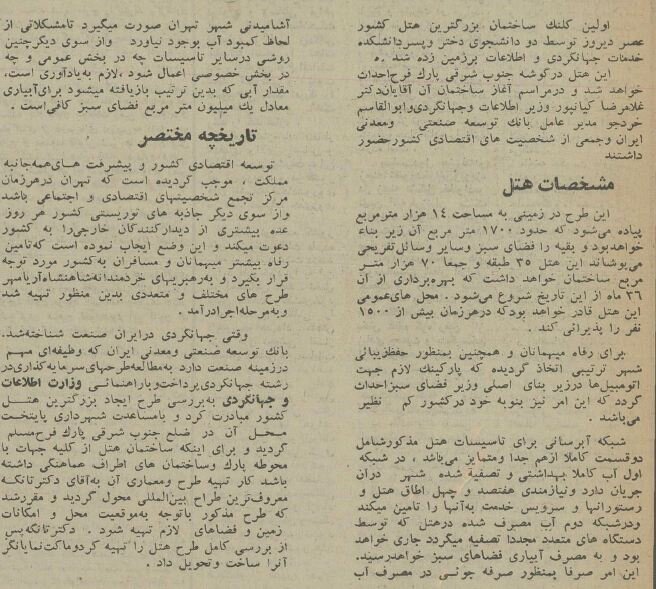 اولین کلنک ساختمان بزرگترین هتل کشور
عصر دیروز توسط دو دانشجوی دختر وپسردانشکده
خدمات جهانگردی و اطلاعات برزمین زده شد .
این هتل درگوشه جنوب شرقی پارك فرح احداث
خواهد شد و درمراسم آغاز ساختمان آن آقایان دکتر
غلامرضا کیانپور وزیر اطلاعات وجهانگردی وابوالقاسم
خردجو مدیر عامل بانك توسعه صنعتی ومعدنی
ایران وجمعی از شخصیت های اقتصادی کشور حضور
داشتند
مشخصات هتل
این طرح در زمینی به مساحت ۱۴ هزار مترمربع
پیاده می‌شود که حدود ۱۷۰۰ متر مربع آن زیر بناء
خواهدبود و بقیه را فضای سبز وسایر وسائل تفریحی
می‌پوشاند این هتل ۳۵ طبقه و جمعا ۷۰ هزار متر
مربع ساختمان خواهد داشت که بهره‌برداری از آن
۳۶ ماه از این تاریخ شروع می‌شود . محل های‌عمومی
این هتل قادر خواهد بودکه درهرزمان بیش از ۱۵۰۰
نفر را پذیرائی کند .
برای رفاه میهمانان و همچنین بمنظور حفظ زیبائی
شهر ترتیبی اتخاذ گردیده که پارکینك لازم جهت
اتومبیل‌ها درزیر بنای اصلی وزیر فضای سبز احداث
گردد که این امر نیز بنوبه خود درکشور کم نظیر
می‌باشد .
شبکه آبرسانی برای تاسیسات هتل مذکور شامل
دوقسمت کاملا ازهم جدا ومتمایز می‌باشد ، در شبکه
اول آب کاملا بهداشتی و تصفیه شده شهر دران
جریان دارد ونیازمندی هفتصد و چهل اطاق هتل و
رستورانها و سرویس خدمت به‌آنها را تامین میکند
ودرشبکه دوم آب مصرف شده درهتل که توسط
دستگاه های متعدد مجددا تصفیه میگردد جاری خواهد
بود و به مصرف آبیاری فضاهای سبز خواهدرسید.
این امر صرفا بمنظور صرفه جوئی در مصرف آب
آشامیدنی شهر تهران صورت میگیرد تامشکلاتی از
لحاظ کمبود آب بوجود نیاورد وااز سوی دیگرچنین
روشی درسایر تاسیسات چه در بخش عمومی و چه
در بخش خصوصی اعمال شود ،لازم به‌یادآوری است،
مقدار آبی که بدین ترتیب بازیافته میشود برای‌آبیاری
معادل یك میلیون متر مربع فضای سبز کافی‌است .
تاریخچه مختصر
توسعه اقتصادی کشور و پیشرفت های‌همه‌جانبه
مملکت ، موجب گردیده است که تهران درهرزمان
مرکز تجمع شخصیتهای اقتصادی و اجتماعی باشد
واز سوی دیگر جاذبه های توریستی کشور هر روز
عده بیشتری از دیدارکنندگان خارجی‌را به کشور
دعوت میکند و این وضع ایجاب نموده است که‌تامین
رفاه بیشتر میهمانان و مسافران به‌کشور مورد توجه
قرار بگیرد و به‌رهبریهای خردمندانه‌شاهنشاه‌آریامهر
طرح های مختلف و متعددی بدین منظور تهیه شد
وبه‌مرحله‌اجرا درآمد .
وقتی جهانگردی درایران صنعت شناخته‌شد.
بانك توسعه صنعتی ومعدنی ایران که وظیفه‌ای مهم
درزمینه صنعت دارد به‌مطالعه‌طرحهای‌سرمایه‌گذاری‌در
رشته جهانگردی‌پرداخت‌وباراهنمائی وزارت اطلاعات
و جهانگردی به‌بررسی طرح ایجاد بزرگترین هتل
کشور مبادرت کرد و بامساعدت شهرداری پایتخت
محل آن در ضلع جنوب شرقی پارك فرح‌مسلم
گردید و برای اینکه ساختمان هتل از کلیه جهات با
محوطه پارك وساختمان های اطراف هماهنگی داشته
باشد کار تهیه طرح ومعماری آن به‌آقای دکترتانکه
معروف‌ترین طراح بین‌المللی محول گردید و مقررشد
که طرح مذکور باتوجه به‌موقعیت محل و امکانات
زمین و فضاهای لازم تهیه شود . دکترتانگه‌پس
از بررسی کامل طرح هتل را تهیه کردوماکت‌نمایانگر
آنرا ساخت وتحویل داد .